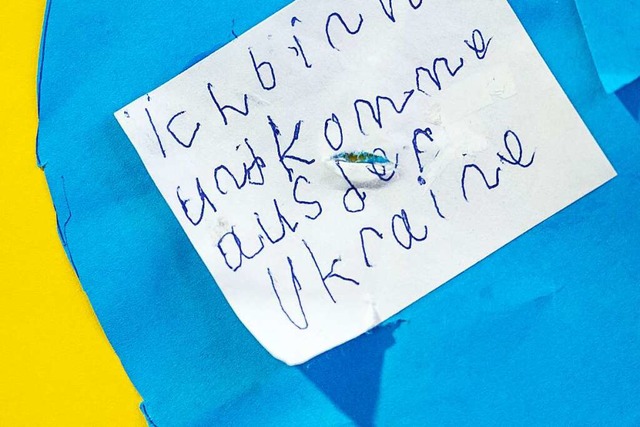 ich bin
und komme
aus der
Ukraine